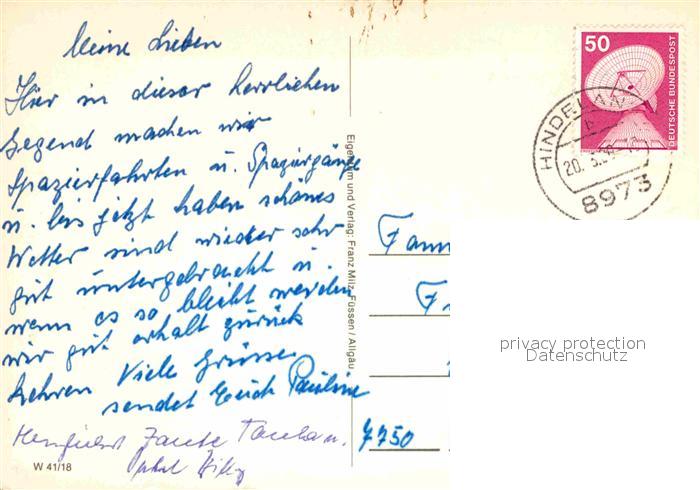 Meine Lieben
Hier in dieser herrlichen
Gegend machen wir
Spazierfahrten u. Spaziergänge
u. bis jetzt haben schönes
Wetter sind wieder sehr
gut untergebracht u.
wenn es so bleibt werden
wir gut erhalt zurück
kehren Viele Grüsse
sendet Euch Pauline
Tante
W 41/18
Eigentum und Verlag: Franz Milz, Füssen / Allgäu
50
DEUTSCHE BUNDESPOST
HINDELANG
20. 3.
8973
Fam
7750
privacy protection
Datenschutz